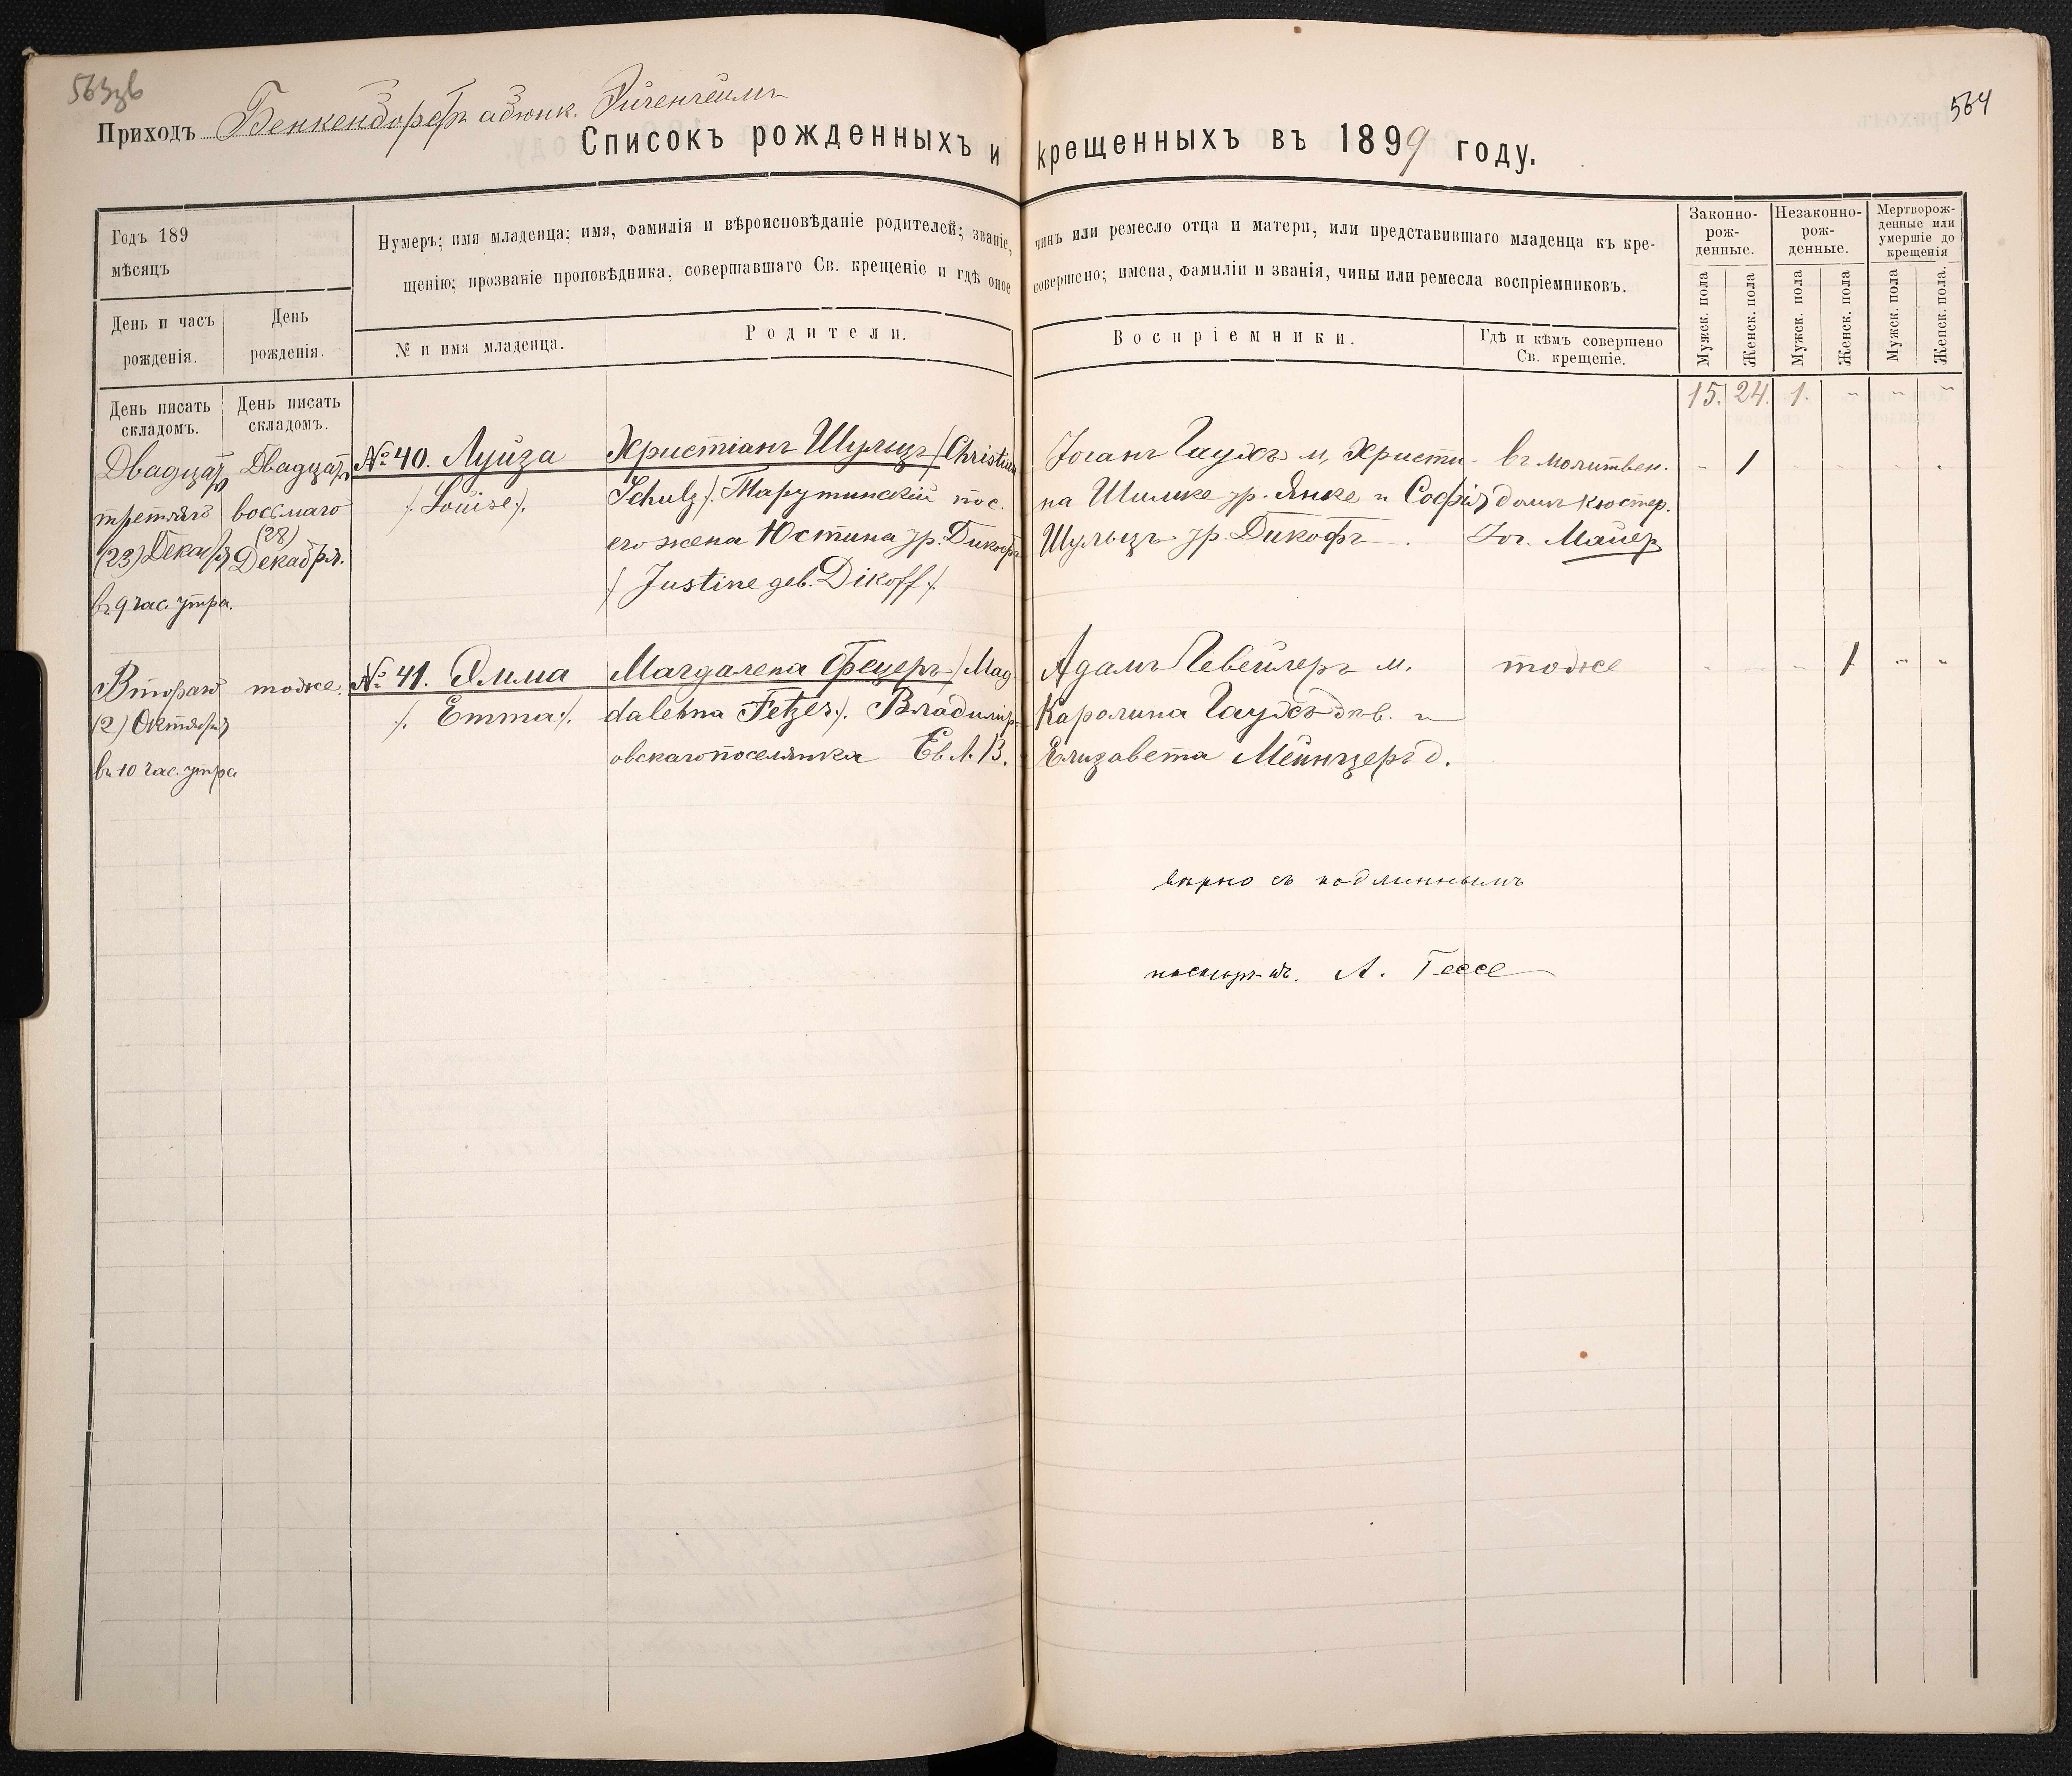 563зв
564
Приходъ Бенкендорфъ адъюнк. Эйгенгеймъ
Списокъ рожденныхъ и крещенныхъ въ 1899 году.
Годъ 189
мѣсяцъ
День и часъ рожденія.
День рожденія.
Нумеръ; имя младенца; имя, фамилія и вѣроисповѣданіе родителей; званіе, чинъ или ремесло отца и матери, или представившаго младенца къ кре-
щенію; прозваніе проповѣдника, совершавшаго Св. крещеніе и гдѣ оное совершено; имена, фамиліи и званія, чины или ремесла воспріемниковъ.
№ и имя младенца.
Родители.
Воспріемники.
Гдѣ и кѣмъ совершено
Св. крещеніе.
Законно-
рож-
денные.
Незаконно-
рож-
денные.
Мертворож-
денные или
умершіе до
крещенія
Мужск. пола
Женск. пола
Мужск. пола
Женск. пола
Мужск. пола
Женск. пола.
День писать
складомъ.
День писать
складомъ.
15. 24. 1. - - -
Двадцать
третяго
(23) Декабря
въ 9 час. утра.
Двадцать
восьмаго
(28)
Декабря.
№ 40. Луйза
/. Louise /.
Христіанъ Шульцъ /Christian
Schulz/. Тарутинскій пос.
его жена Юстина ур. Дикофъ
/ Justine geb. Dikoff /.
Іоганъ Гаухъ м, Христи-
на Шимке ур. Янке и Софія
Шульцъ ур. Дикофъ.
въ молитвен.
домѣ кюстер.
Іог. Майер
1
Втораго
(2) Октября
въ 10 час. утра
тоже.
№ 41. Эмма
/. Emma /.
Магдалена Фецеръ /Mag
dalehna Fetzer/. Владимір-
овскаго поселянка Ев. Л. В.
Адамъ м.
Каролина Гаухъ дѣв. и
Елизавета Мейнцеръ д.
тоже
1
вѣрно съ подлиннымъ
А. Гессе